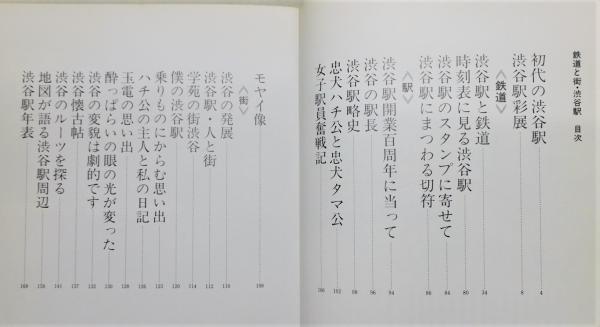 鉄道と街・渋谷駅 目次
初代の渋谷駅 4
渋谷駅彩展 8
《鉄道》
渋谷駅と鉄道 34
時刻表に見る渋谷駅 80
渋谷駅のスタンプに寄せて 84
渋谷駅にまつわる切符 86
《駅》
渋谷駅開業百周年に当って 94
渋谷の駅長 96
渋谷駅略史 98
忠犬ハチ公と忠犬タマ公 102
女子駅員奮戦記 106
モヤイ像 108
《街》
渋谷の発展 110
渋谷駅・人と街 112
学苑の街渋谷 114
僕の渋谷駅 120
乗りものにからむ思い出
ハチ公の主人と私の日記
玉電の思い出
酔っぱらいの眼の光が変った 130
渋谷の変貌は劇的です 132
渋谷懐古帖 137
渋谷のルーツを探る 141
地図が語る渋谷駅周辺
渋谷駅年表